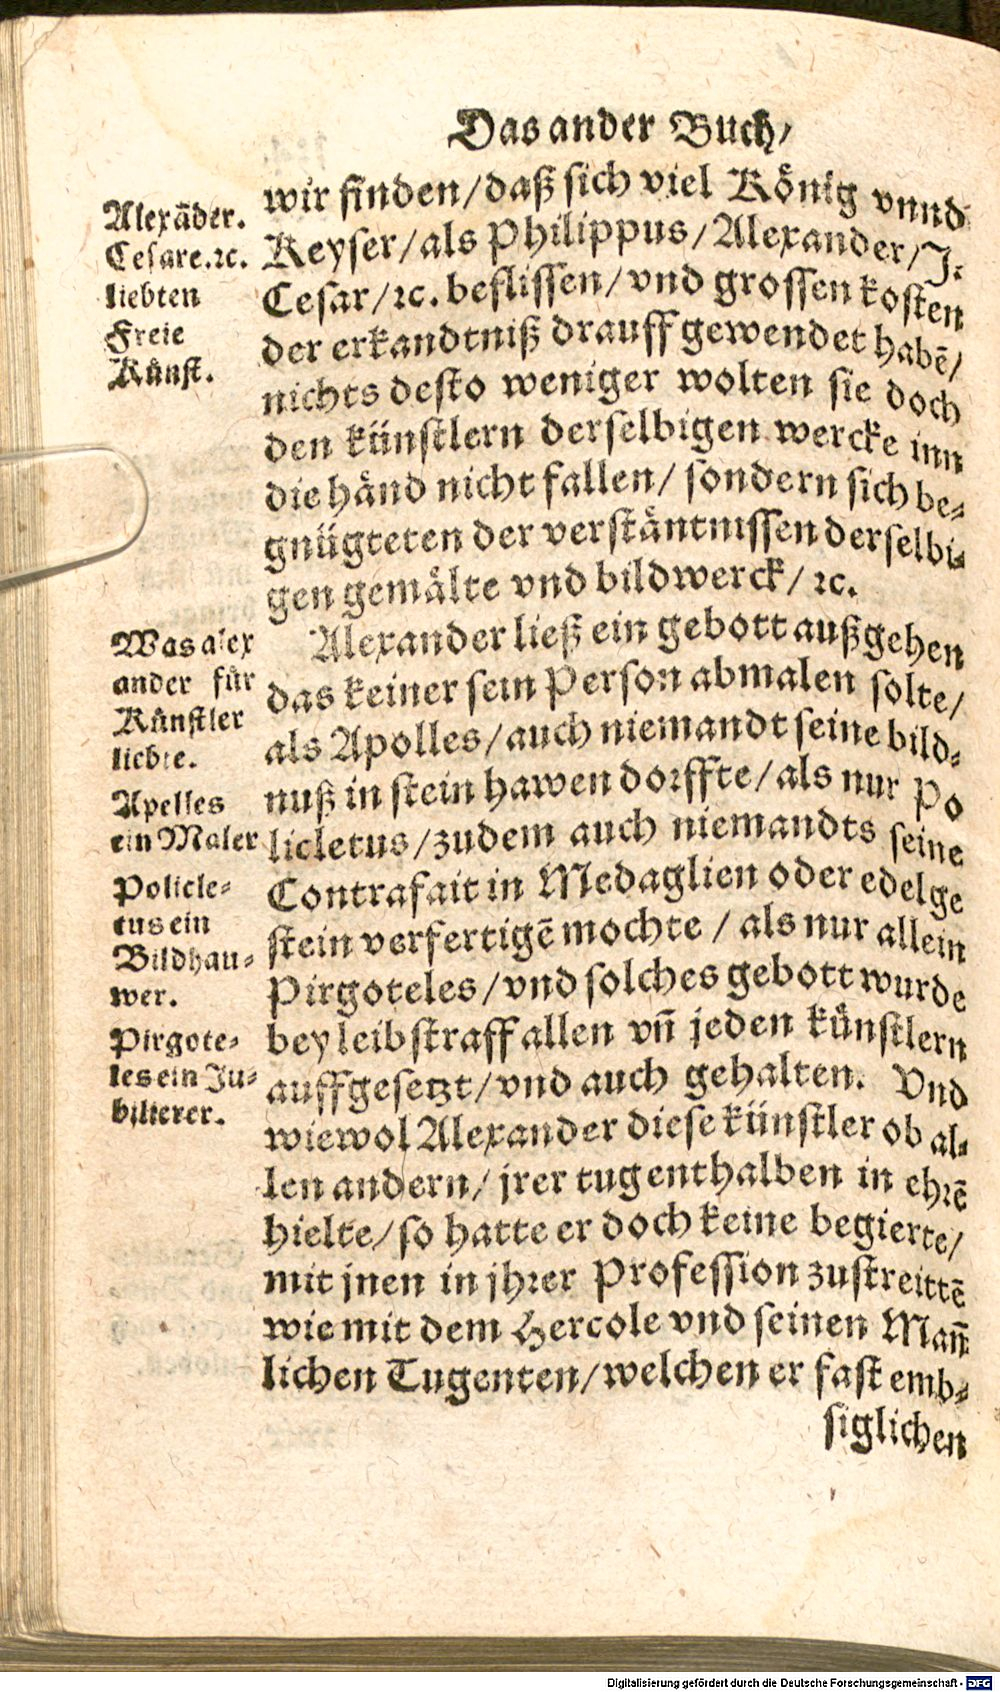 Das ander Buch/
wir finden/daß sich viel König vnnd
Keyser/als Philippus/Alexander/J.
Cesar/ꝛc. beflissen/vnd grossen kosten
der erkandtniß drauff gewendet habẽ/
nichts desto weniger wolten sie doch
den künstlern derselbigen wercke inn
die händ nicht fallen/ sondern sich be-
gnügteten der verstäntnissen derselbi-
gen gemälte vnd bildwerck/ ꝛc.
Alexander ließ ein gebott außgehen
das keiner sein Person abmalen solte/
als Apolles/auch niemandt seine bild-
nuß in stein hawen dorffte/als nur Po
licletus/zudem auch niemandts seine
Contrafait in Medaglien oder edelge
stein verfertigẽ mochte / als nur allein
Pirgoteles/vnd solches gebott wurde
bey leibstraff allen vñ jeden künstlern
auffgesetzt/vnd auch gehalten. Vnd
wiewol Alexander diese künstler ob al-
len andern/ jrer tugenthalben in ehrẽ
hielte/so hatte er doch keine begierte/
mit jnen in jhrer Profession zustreittẽ
wie mit dem Hercole vnd seinen Mañ
lichen Tugenten/welchen er fast emb-
siglichen
Alexãder.
Cesare.ꝛc.
liebten
Freie
Künst.
Was alex
ander für
Künstler
liebte.
Apelles
ein Maler
Policle-
tus ein
Bildhau-
wer.
Pirgote-
les ein Ju-
bilierer.
Digitalisierung gefördert durch die Deutsche Forschungsgemeinschaft - DFG